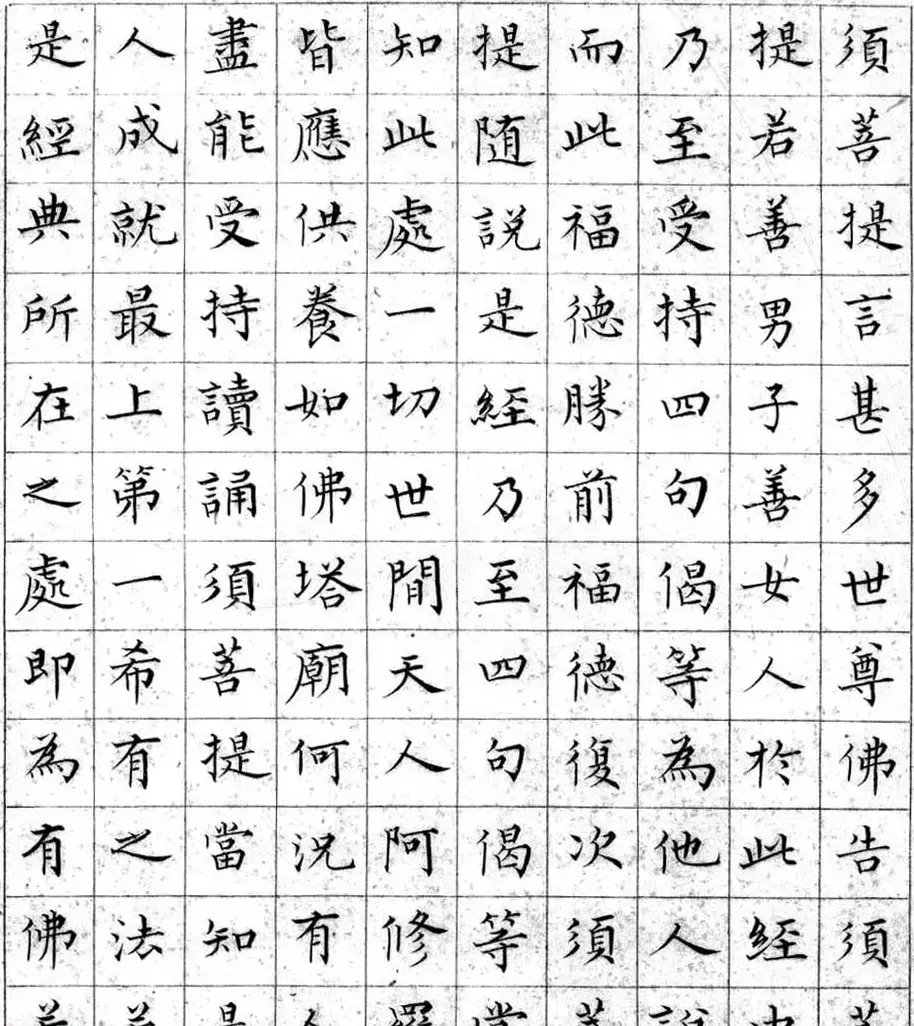 須菩提言甚多世尊佛告須
提若善男子善女人於此經
乃至受持四句偈等為他人
而此福德勝前福德復次須
提隨說是經乃至四句偈等
知此處一切世間天人阿修
皆應供養如佛塔廟何況有
盡能受持讀誦須菩提當知
人成就最上第一希有之法
是經典所在之處即為有佛